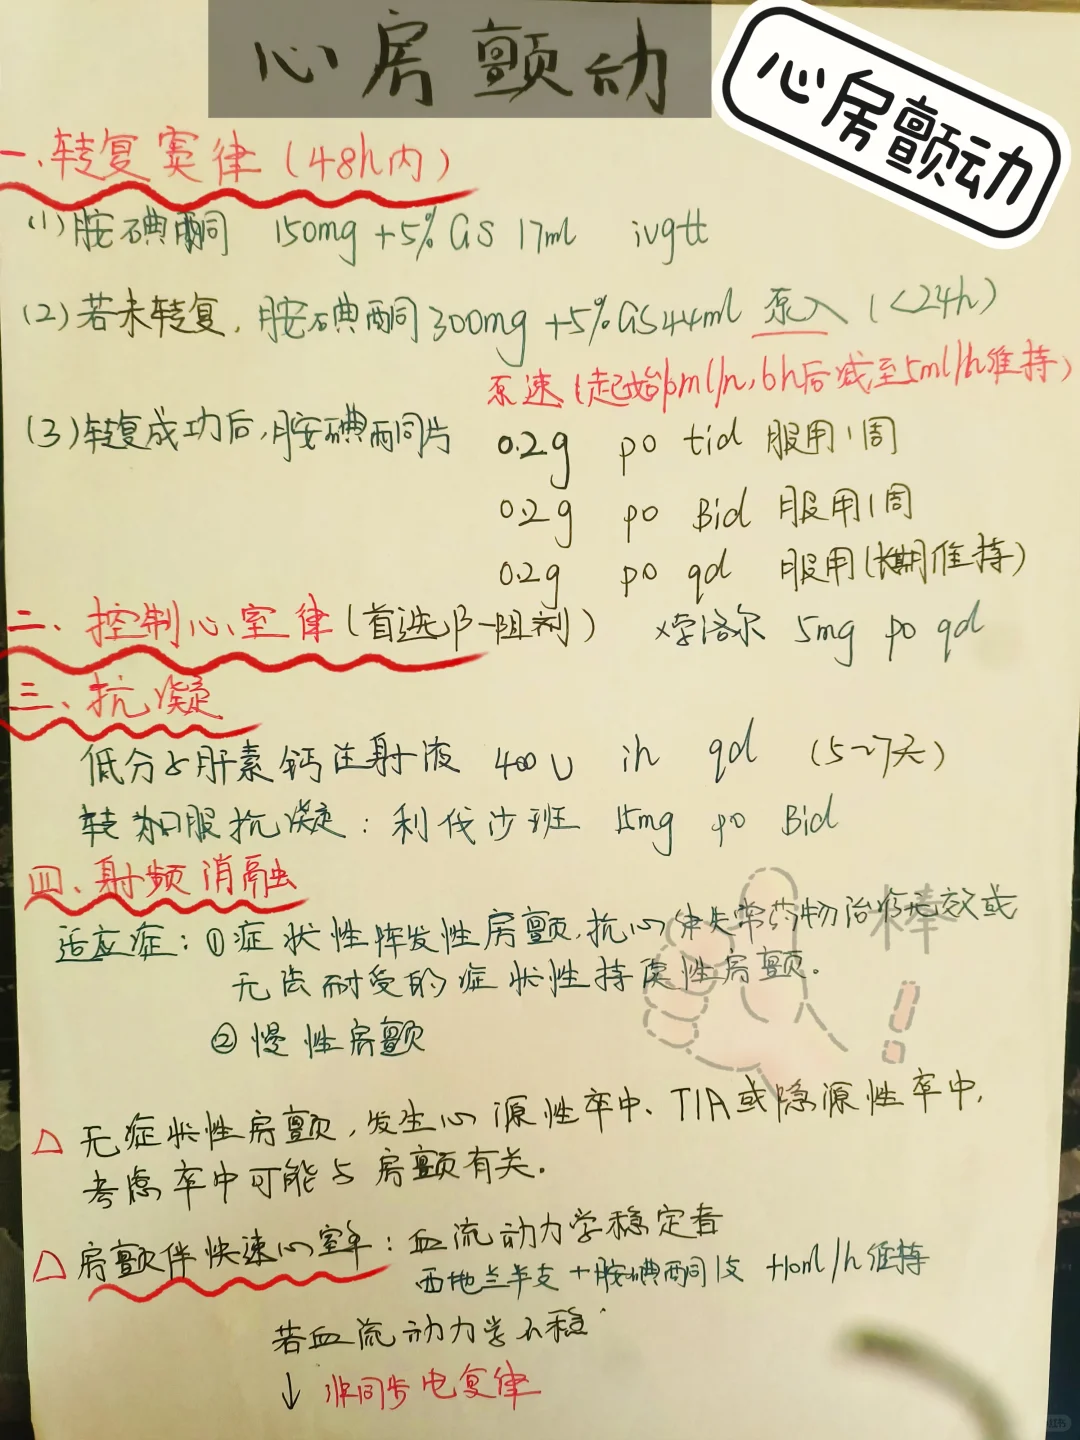 心房颤动
心房颤动
一、转复窦律（48h内）
(1)胺碘酮 150mg+5%GS 17ml ivgtt
(2)若未转复，胺碘酮300mg+5%GS44ml 泵入（<24h）
泵速（起始 ml/h，6h后减至5ml/h维持）
(3)转复成功后，胺碘酮片 0.2g po tid 服用1周
0.2g po Bid 服用1周
0.2g po qd 服用（长期维持）
二、控制心室律（首选β-阻剂） 洛尔 5mg po qd
三、抗凝
低分子肝素钙注射液 400U ih qd （5~7天）
转为口服抗凝：利伐沙班 15mg po Bid
四、射频消融
适应症：①症状性阵发性房颤，抗心律失常药物治疗无效或
无法耐受的症状性持续性房颤。
②慢性房颤
棒！
△ 无症状性房颤，发生心源性卒中、TIA或隐源性卒中，
考虑卒中可能与房颤有关。
△ 房颤伴快速心室率：血流动力学稳定者
西地兰半支+胺碘酮1支 +10ml/h维持
若血流动力学不稳
↓ 非同步电复律